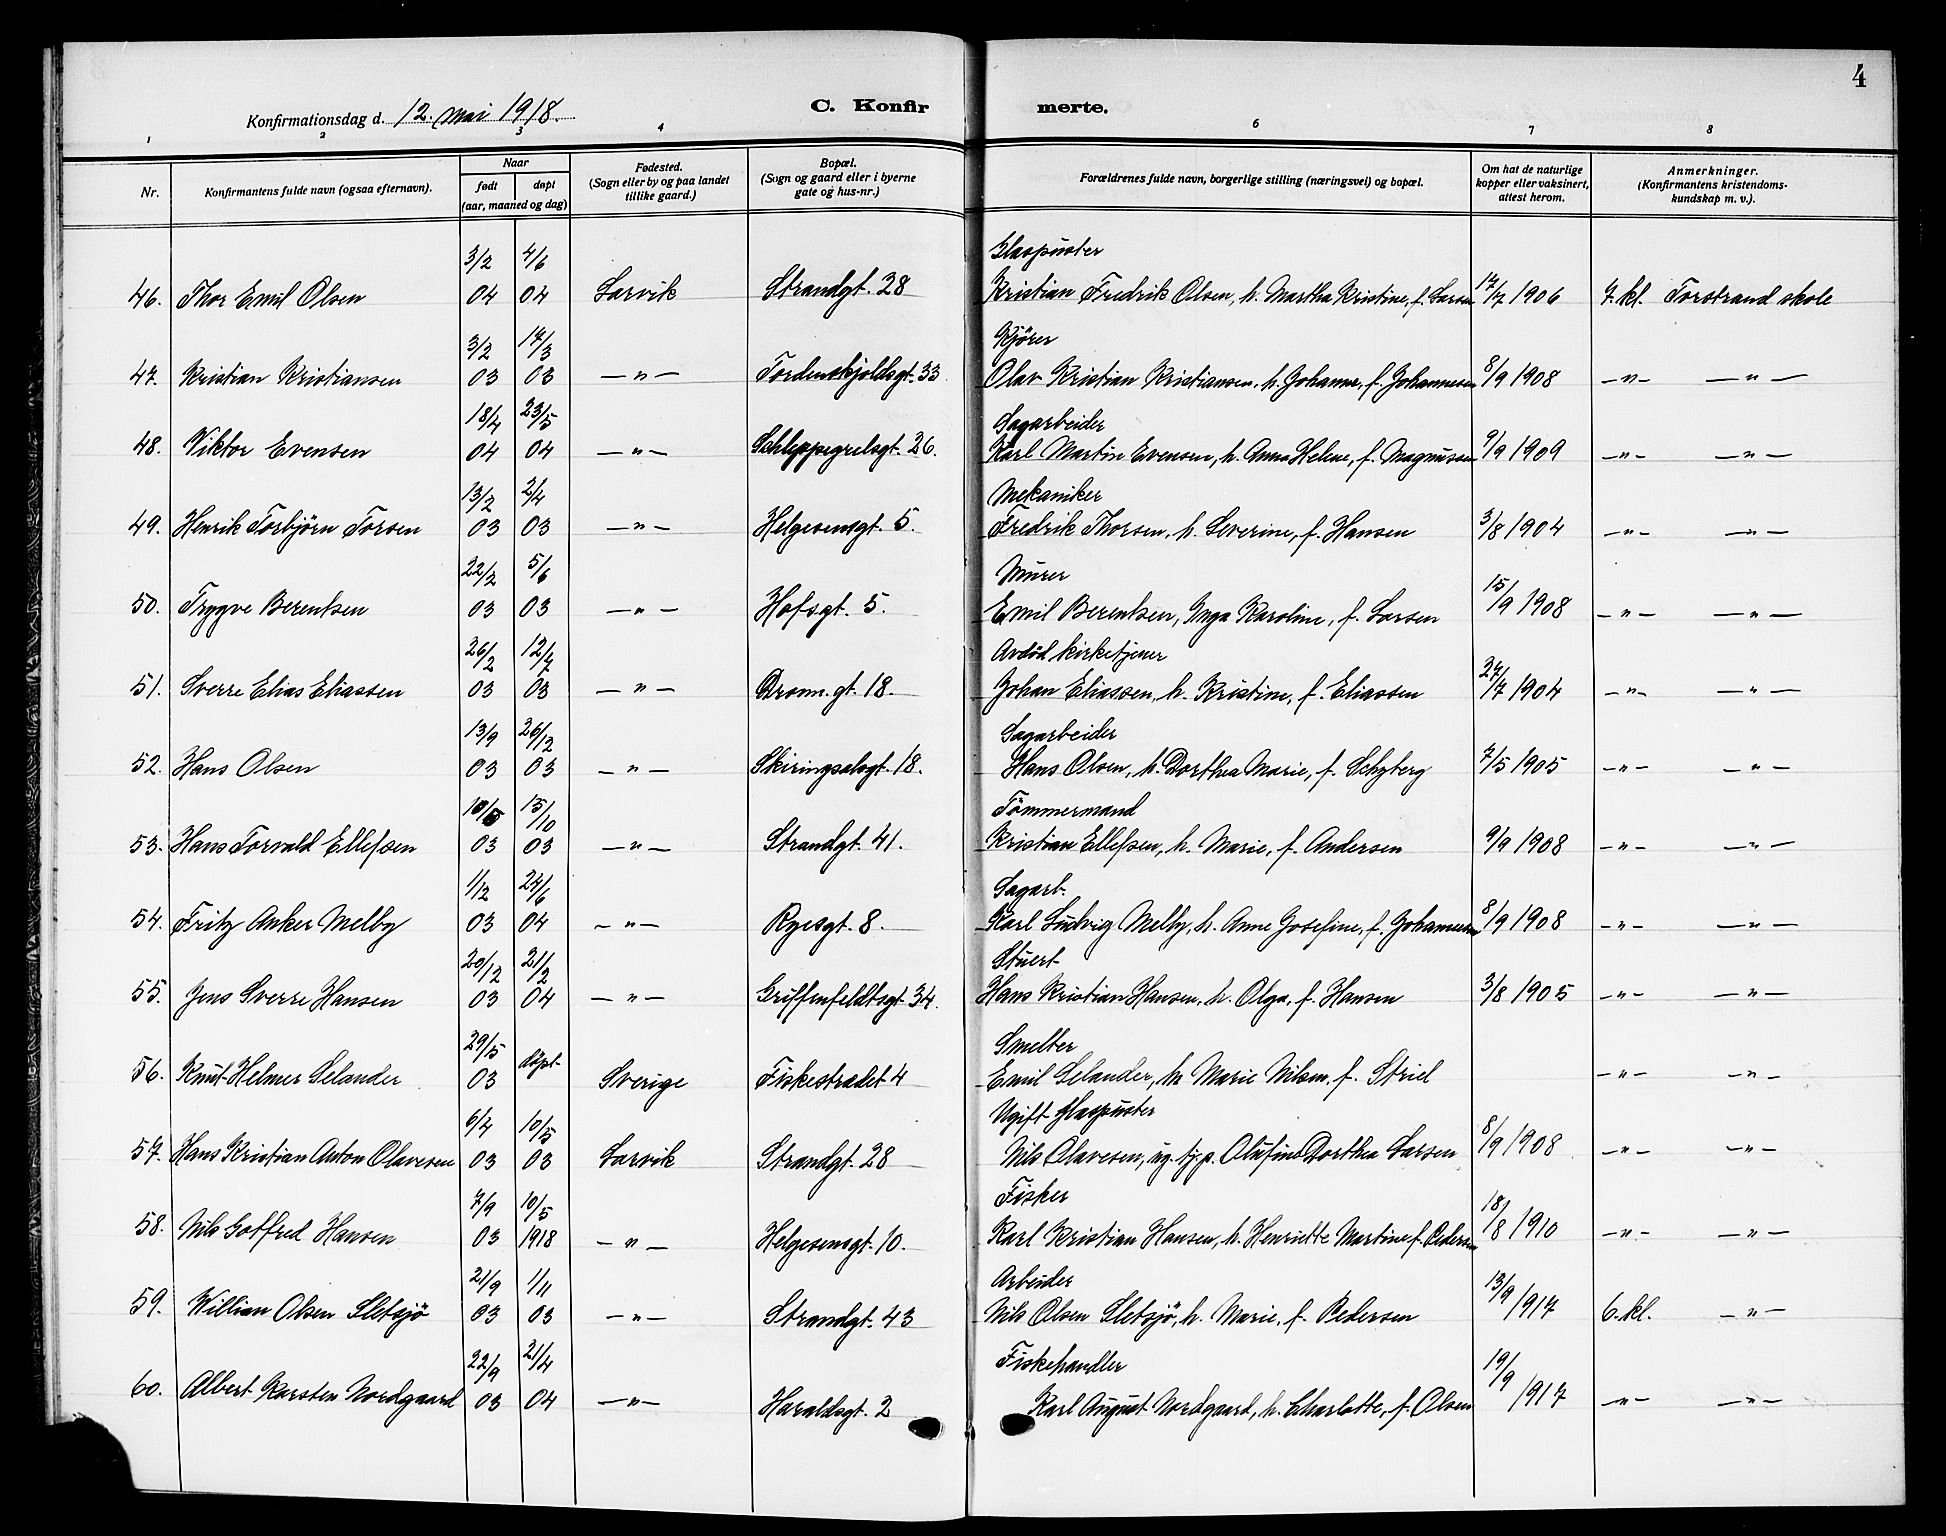 4
Konfirmationsdag d. 12. mai 1918.
C. Konfirmerte.
1 2 3 4 6 7 8
Nr. Konfirmantens fulde navn (ogsaa efternavn). Naar født døpt (aar, maaned og dag) Fødested. (Sogn eller by og paa landet tillike gaard.) Bopæl. (Sogn og gaard eller i byerne gate og hus-nr.) Forældrenes fulde navn, borgerlige stilling (næringsvei) og bopæl. Om hat de naturlige kopper eller vaksinert, attest herom. Anmerkninger. (Konfirmantens kristendoms-kundskap m. v.).
3/2 4/6 Glaspuster
46. Thor Emil Olsen 04 04 Larvik Strandgt. 28 Kristian Fredrik Olsen, h. Martha Kristine, f. Larsen 17/7 1906 7. kl. Torstrand skole
3/2 14/3 Kjører
47. Kristian Kristiansen 03 03 —"— Tordenskjoldsgt. 33. Olav Kristian Kristiansen, h. Johanne, f. Johannesen 8/9 1908 —"— —"—
18/4 23/5 Sagarbeider
48. Viktor Evensen 04 04 —"— Schleppegrelsgt. 26. Karl Martin Evensen, h. Anna Helene, f. Magnussen 9/9 1909 —"— —"—
13/2 2/4 Mekaniker
49. Henrik Torbjörn Torsen 03 03 —"— Helgesensgt. 5. Fredrik Thorsen, h. Severine, f. Hansen 3/8 1904 —"— —"—
22/2 5/6 Murer
50. Trygve Berentsen 03 03 —"— Hofsgt. 5. Emil Berentsen, Inga Karoline, f. Larsen 15/9 1908 —"— —"—
26/2 12/7 Avdöd kirketjener
51. Sverre Elias Eliassen 03 03 —"— Dronn. gt. 18. Johan Eliassen, h. Kristine, f. Eliassen 27/7 1904 —"— —"—
13/9 26/12 Sagarbeider
52. Hans Olsen 03 03 —"— Skiringsalsgt. 18. Hans Olsen, h. Dorthea Marie, f. Schyberg 7/5 1905 —"— —"—
15/10 Tömmermand
53. Hans Torvald Ellefsen 03 03 —"— Strandgt. 41. Kristian Ellefsen, h. Marie, f. Andersen 9/9 1908 —"— —"—
1/12 24/6 Sagarb.
54. Fritz Anker Melby 03 04 —"— Ryesgt. 8. Karl Ludvig Melby, h. Anne Josefine, f. Johannesen 8/9 1908 —"— —"—
20/12 21/2 Stuert
55. Jens Sverre Hansen 03 04 —"— Griffenfeldtsgt. 34. Hans Kristian Hansen, h. Olga, f. Hansen 3/8 1905 —"— —"—
29/5 döpt Smelter
56. Knut Helmer Selander 03 Sverige Fiskestrædet 4 Emil Selander, h. Marie Nilsen, f. Striel —"— —"—
6/4 10/5 Ugift Glaspuster
57. Hans Kristian Anton Olavesen 03 03 Larvik Strandgt. 28 Nils Olavesen, ug. tj.p. Olufine Dorthea Larsen 8/9 1908 —"— —"—
7/9 10/5 Fisker
58. Nils Gotfred Hansen 03 1918 —"— Helgesensgt. 10. Karl Kristian Hansen, h. Henriette Martine f. Pedersen 18/8 1910 —"— —"—
21/9 1/11 Arbeider
59. Willian Olsen Sletsjö 03 03 —"— Strandgt. 43 Nils Olsen Sletsjö, h. Marie, f. Pedersen 13/9 1917 6. kl. —"—
22/9 21/4 Fiskehandler
60. Albert Karsten Nordgaard 03 04 —"— Haraldsgt. 2 Karl August Nordgaard, h. Charlotte, f. Olsen 19/9 1917 —"— —"—